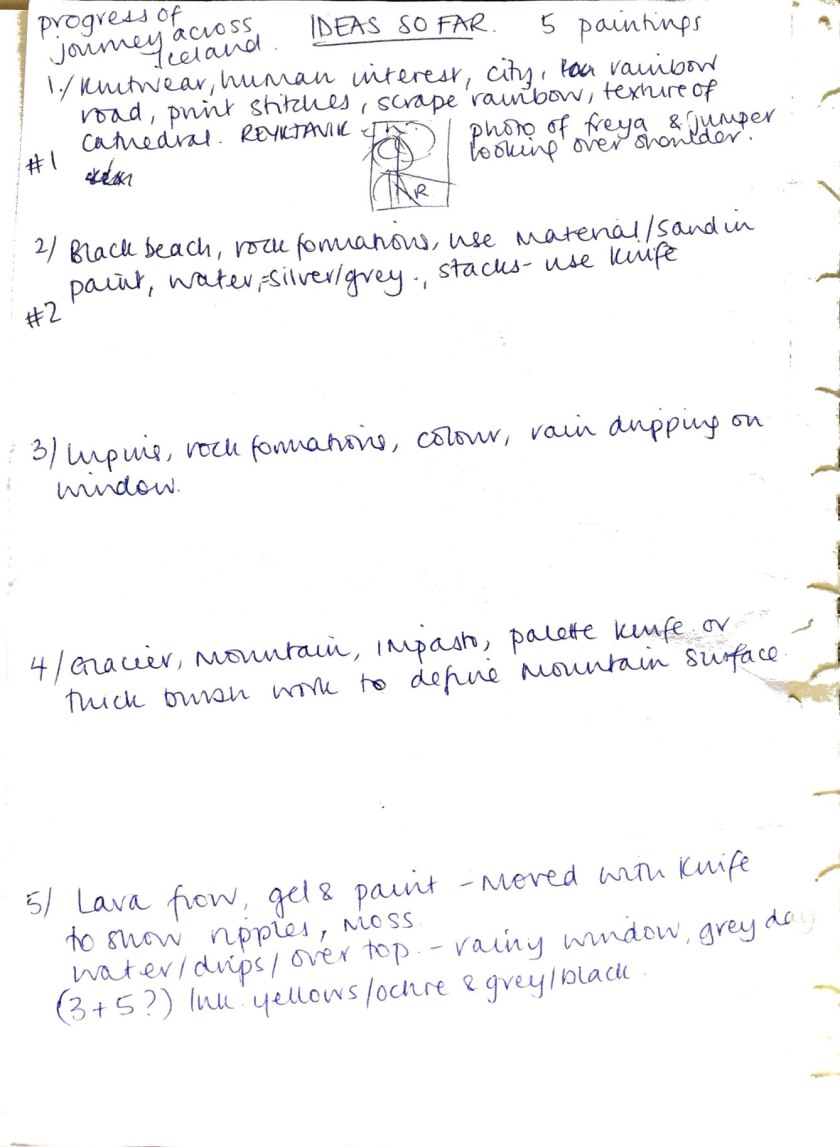 progress of
journey across
Iceland.
IDEAS SO FAR. 5 paintings
1./ Knitwear, human interest, city, rainbow
road, print stitches, scrape rainbow, texture of
cathedral. REYKTAVIK
photo of freya & jumper
looking over shoulder.
#1
R
2/ Black beach, rock formations, use material/sand in
paint, water,=silver/grey., stacks- use knife
#2
3/ Lupins, rock formations, colour, rain dripping on
window.
4/ Glacier, mountain, impasto, palette knife or
thick brush work to define mountain surface.
5/ Lava flow, gel & paint - moved with knife
to show ripples, moss.
water/drips/over top. - rainy window, grey day
(3+5?) Ink. yellows/ochre & grey/black.